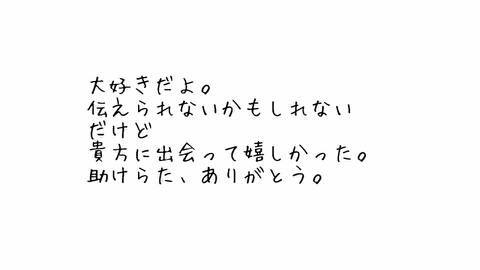 大好きだよ。
伝えられないかもしれない
だけど
貴方に出会って嬉しかった。
助けらた、ありがとう。